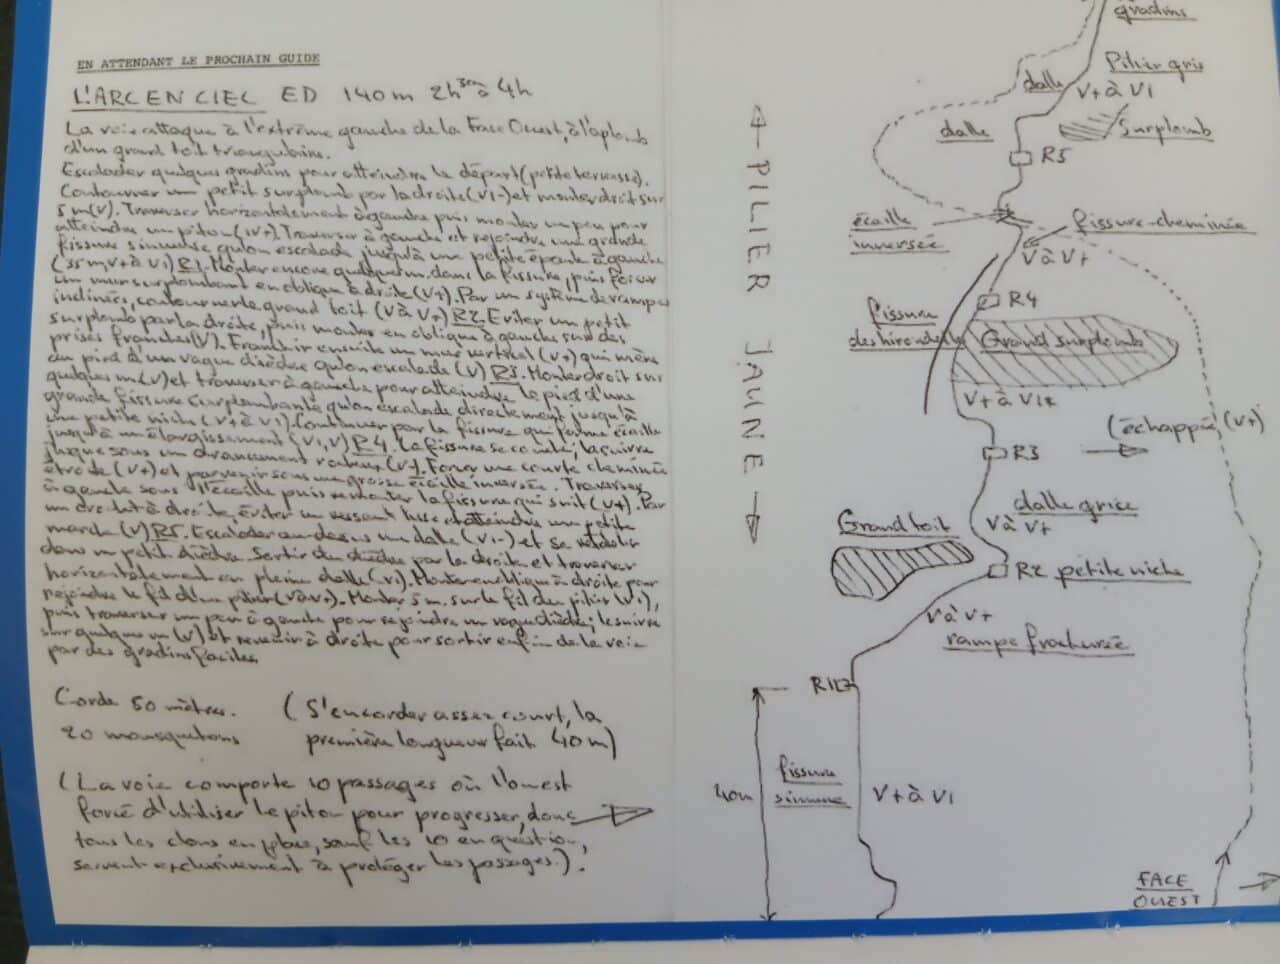 EN ATTENDANT LE PROCHAIN GUIDE
L'ARC EN CIEL ED 140m 2h 3em à 4h
La voie attaque à l'extrême gauche de la Face Ouest, à l'aplomb
d'un grand toit triangulaire.
Escalader quelques gradins pour atteindre le départ (petite terrasse).
Contourner un petit surplomb par la droite (VI-) et monter droit sur
5 m (V). Traverser horizontalement à gauche puis monter un peu pour
atteindre un piton (IV+). Traverser à gauche et rejoindre une grande
fissure sinueuse qu'on escalade jusqu'à une petite épaule à gauche
(35 m, V+ à VI) R1. Monter encore quelques m. dans la fissure, puis forcer
un mur surplombant en oblique à droite (V+). Par un système de rampes
inclinées, contourner le grand toit (V à V+) R2. Eviter un petit
surplomb par la droite, puis monter en oblique à gauche sur des
prises franches (V). Franchir ensuite un mur vertical (V+) qui mène
au pied d'un vague dièdre qu'on escalade (V) R3. Monter droit sur
quelques m (V) et traverser à gauche pour atteindre le pied d'une
grande fissure surplombante qu'on escalade directement jusqu'à
une petite niche (V+ à VI). Continuer par la fissure qui forme écaille
jusqu'à un élargissement (VI, V) R4. La fissure se couche, la suivre
jusque sous un étranglement (V). Forcer une courte cheminée
étroite (V+) et parvenir sous une grosse écaille inversée. Traverser
à gauche sous l'écaille puis remonter la fissure qui suit (V+). Par
un à droite, éviter un ressaut lisse et atteindre une petite
marche (V) R5. Escalader au-dessus une dalle (VI-) et se rétablir
dans un petit dièdre. Sortir du dièdre par la droite et traverser
horizontalement en pleine dalle (VI). Monter en oblique à droite pour
rejoindre le fil d'un pilier (V à V+). Monter 5 m. sur le fil du pilier (VI),
puis traverser un peu à gauche pour rejoindre un vague dièdre; le suivre
sur quelques m (V) et revenir à droite pour sortir enfin de la voie
par des gradins faciles.
Corde 50 mètres. (S'encorder assez court, la
20 mousquetons première longueur fait 40 m)
(La voie comporte 10 passages où l'on est
forcé d'utiliser le piton pour progresser, donc
tous les clous en place, sauf les 10 en question,
servent exclusivement à protéger les passages.).
gradins
Pilier gris
dalle V+ à VI
dalle
Surplomb
R5
écaille
inversée
fissure-cheminée
V à V+
PILIER JAUNE
R4
fissure
des hirondelles
Grand surplomb
V+ à VI+
(échappée, (V+)
R3
dalle grise
V à V+
Grand toit
R2 petite niche
V à V+
rampe fracturée
R1
40m
fissure
sinueuse
V+ à VI
FACE
OUEST